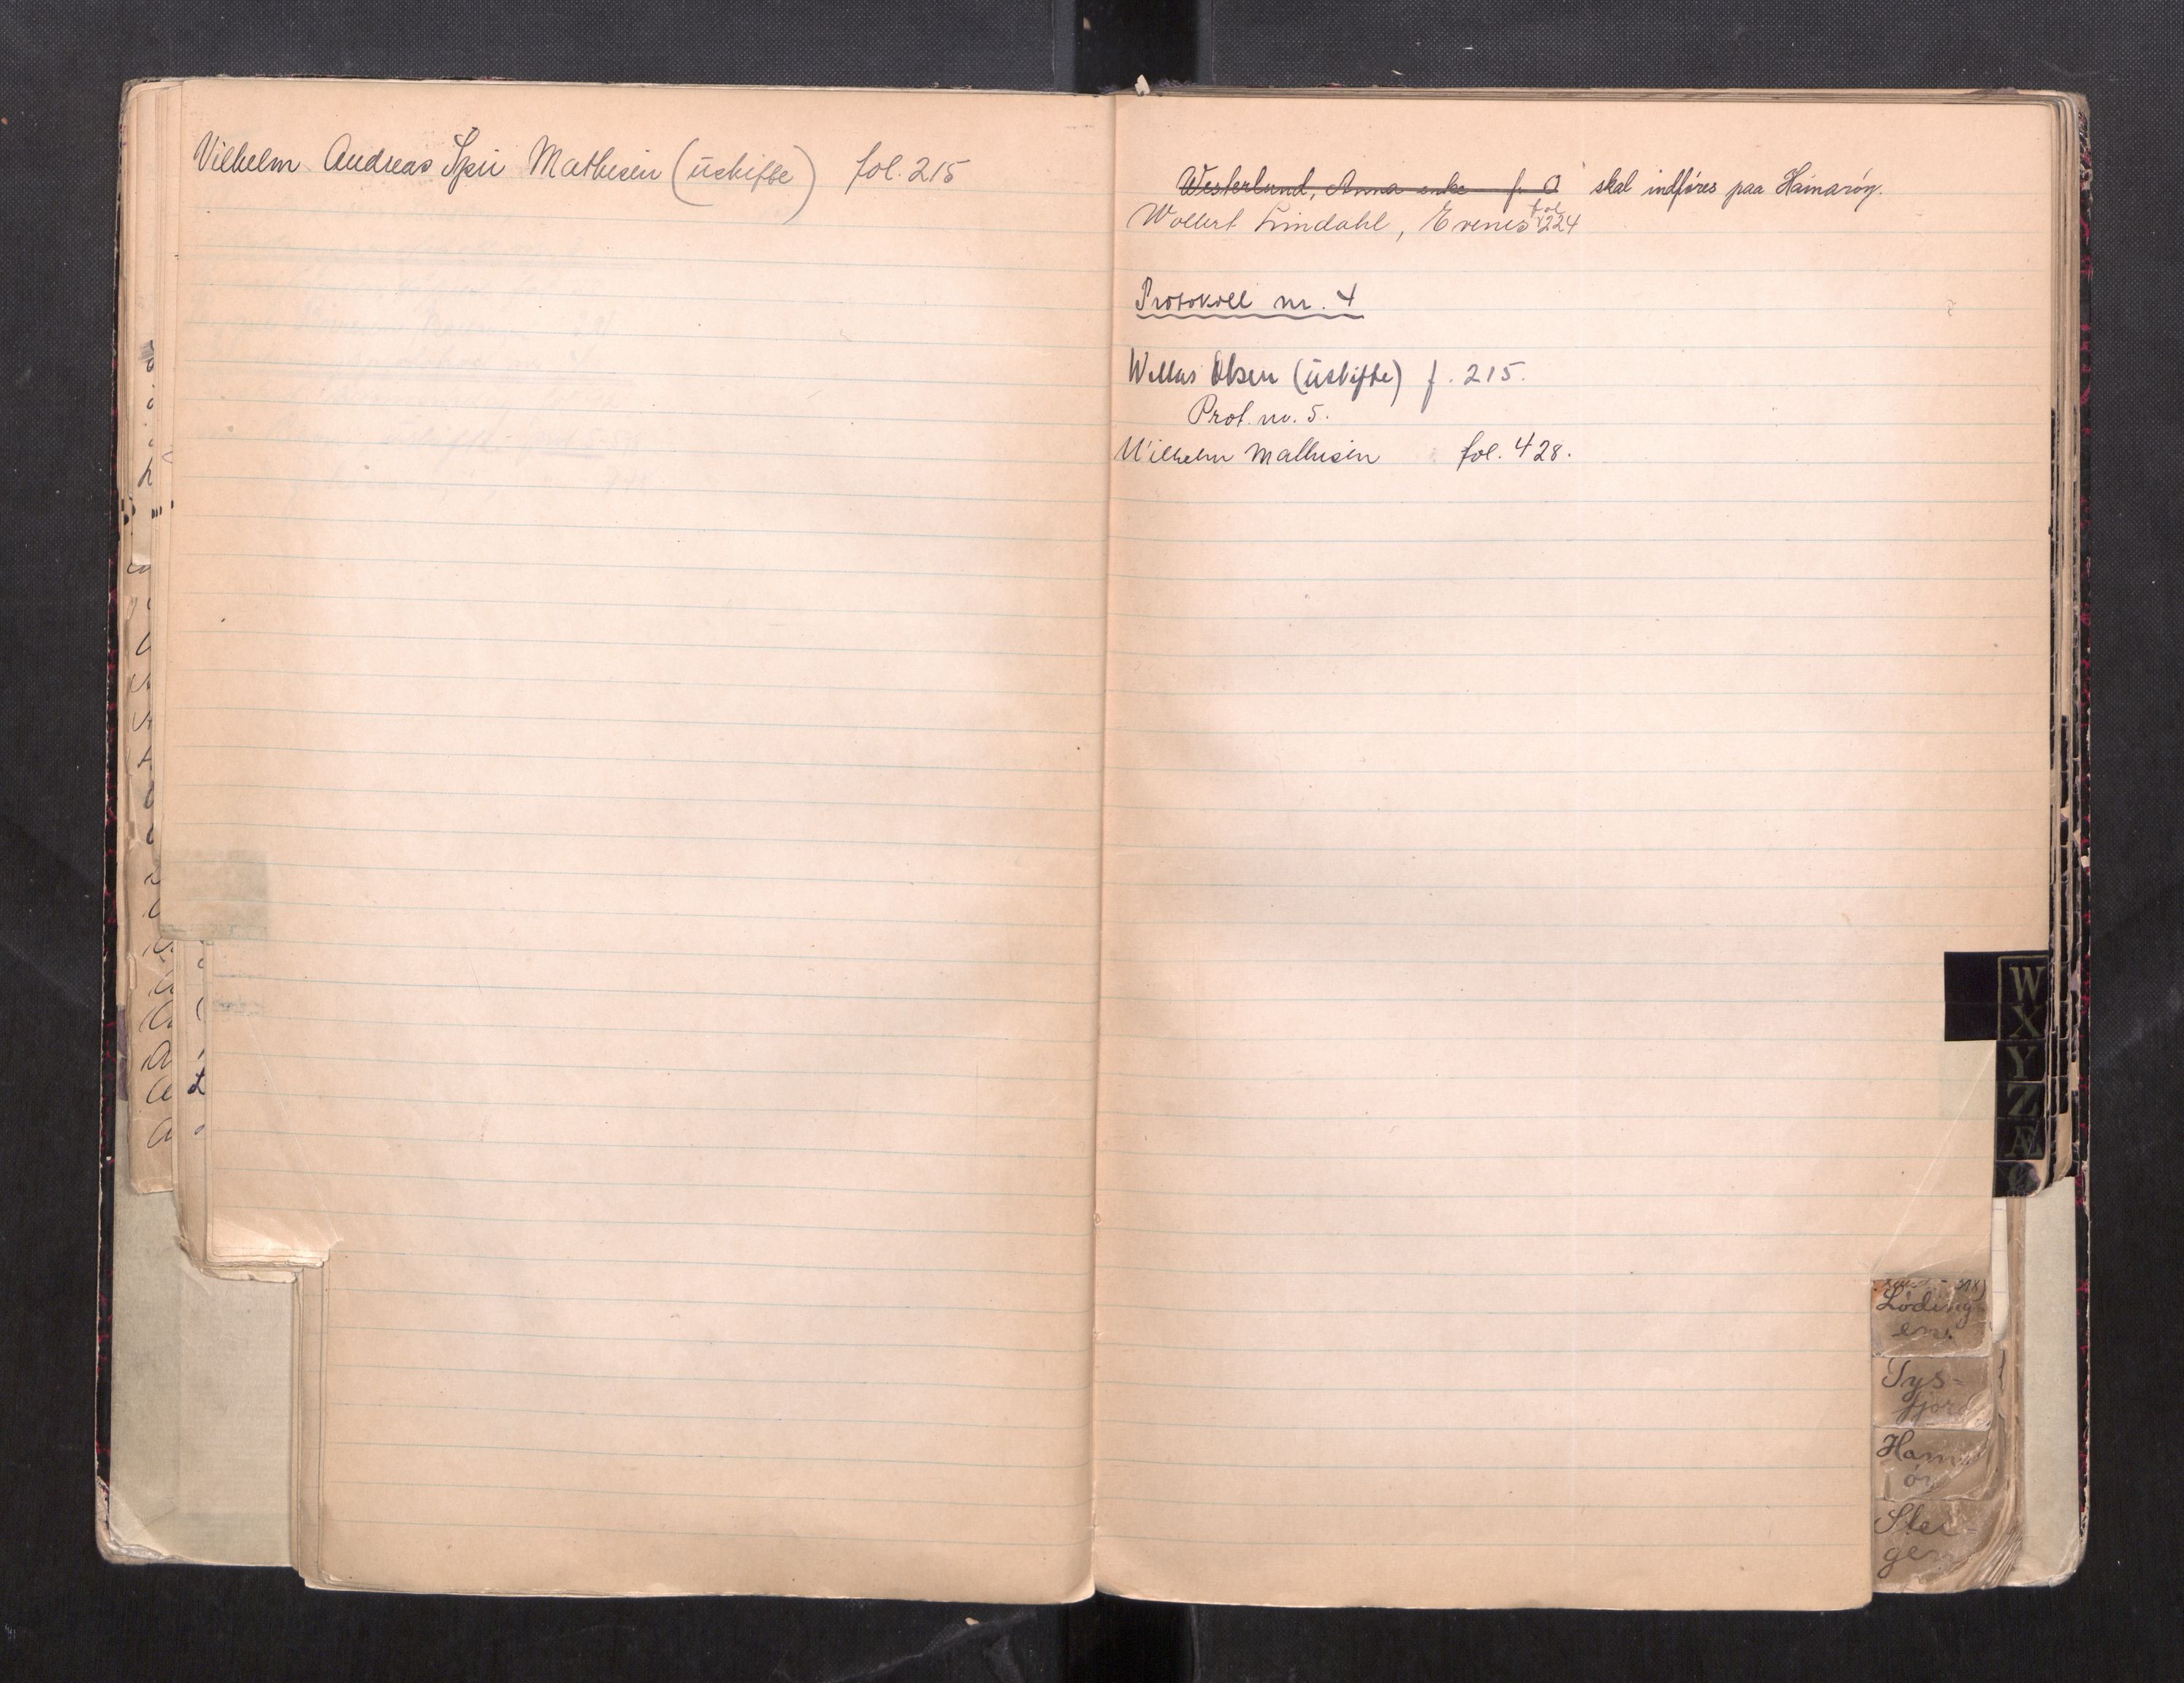 Vilhelm Andreas Mathisen (uskifte) fol. 215
Westerlund, Anna enke f. 0 skal indføres paa Hamarøy.
Wollert Lindahl, Evenes fol 224
Protokoll nr. 4
Willas Olsen (uskifte) f. 215.
Prot. nr. 5.
Wilhelm Mathisen fol. 428.
W
X
Y
Z
Æ
Ø
Løding-
en.
Tys-
fjord
Ham
øy
Stei-
gen